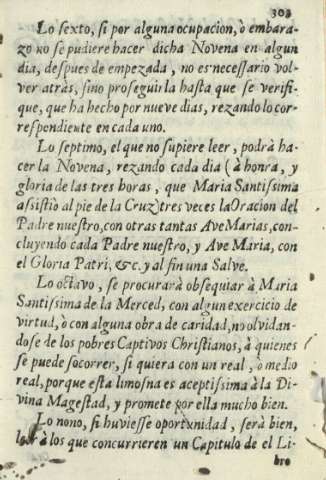 303
Lo sexto, si por alguna ocupacion, ò embara-
zo no se pudiere hacer dicha Novena en algun
dia, despues de empezada, no es necessario vol-
ver atrás, sino proseguirla hasta que se verifi-
que, que ha hecho por nueve dias, rezando lo cor-
respondiente en cada uno.
Lo septimo, el que no supiere leer, podrà ha-
cer la Novena, rezando cada dia (à honra, y
gloria de las tres horas, que Maria Santissima
assistiò al pie de la Cruz) tres veces la Oracion del
Padre nuestro, con otras tantas Ave Marias, con-
cluyendo cada Padre nuestro, y Ave Maria, con
el Gloria Patri, &c. y al fin una Salve.
Lo octavo, se procurarà obsequiar à Maria
Santissima de la Merced, con algun exercicio de
virtud, ò con alguna obra de caridad, no olvidan-
dose de los pobres Captivos Christianos, à quienes
se puede socorrer, si quiera con un real, ò medio
real, porque esta limosna es aceptissima à la Di-
vina Magestad, y promete por ella mucho bien.
Lo nono, si huviesse oportunidad, serà bien,
leer à los que concurrieren un Capitulo de el Li-
bro